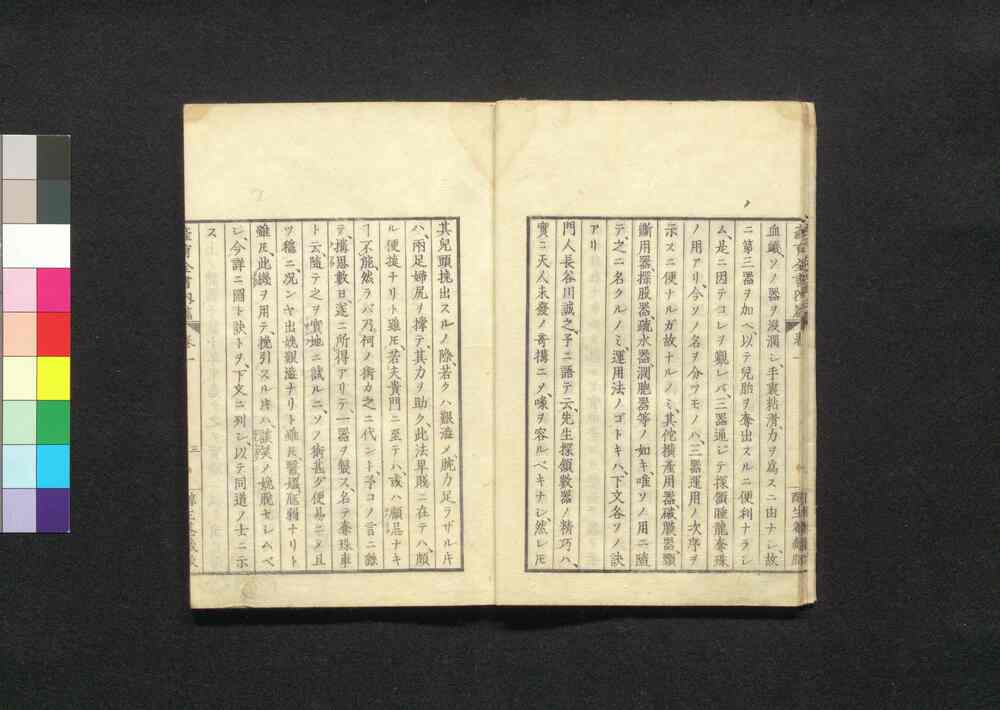 血蠛ソノ器ヲ浸潤シ、手裏粘滑、力ヲ爲スニ由ナシ、故
ニ第三器ヲ加ヘ、以テ兒胎ヲ奪出スルニ便利ナラシ
ム、是ニ因テコレヲ觀レバ、三器通ジテ探頷睡龍奪珠
ノ用アリ、今ソノ名ヲ分ツモノハ、三器運用ノ次序ヲ
示スニ便ナルガ故ナルノミ、其佗横產用器、破膜器、頭
斷用器、探股器、疏水器、潤胞器等ノ如キ、唯ソノ用ニ隨
テ、之ニ名クルノミ、運用法ノゴトキハ、下文各ソノ訣
アリ
門人長谷川誠之、予ニ語テ云、先生探頷數器ノ精巧ハ、
實ニ天人未發ノ奇搆ニソ、喙ヲ容ルベキナシ、然レ𪜈
其兒頭挽出スルノ際、若クハ艱澁ノ腕力足ラザル片
ハ、兩足婦尻ヲ撐テ、其力ヲ助ク、此法卑賤ニ在テハ、頗
ル便捷ナリト雖𪜈、若夫貴門ニ至テハ、或ハ顧忌ナキ
ヿ不能、然ラバ乃何ノ術カ之ニ代ント、予コノ言ニ繇
テ、搆思數日、遂ニ所得アリテ、一器ヲ製ス、名テ奪珠車
ト云、隨テ之ヲ實地ニ試ルニ、ソノ術甚ダ便易ニメ、且
ツ穩ニ、况ンヤ出娩艱澁ナリト雖𪜈、醫嫗尫弱ナリト
雖𪜈、此機ヲ用テ、挽引スル片ハ、談笑ノ娩脫セシムベ
シ、今詳ニ圖ト訣トヲ、下文ニ列シ、以テ同道ノ士ニ示
ス
產育全書内篇 卷一 三